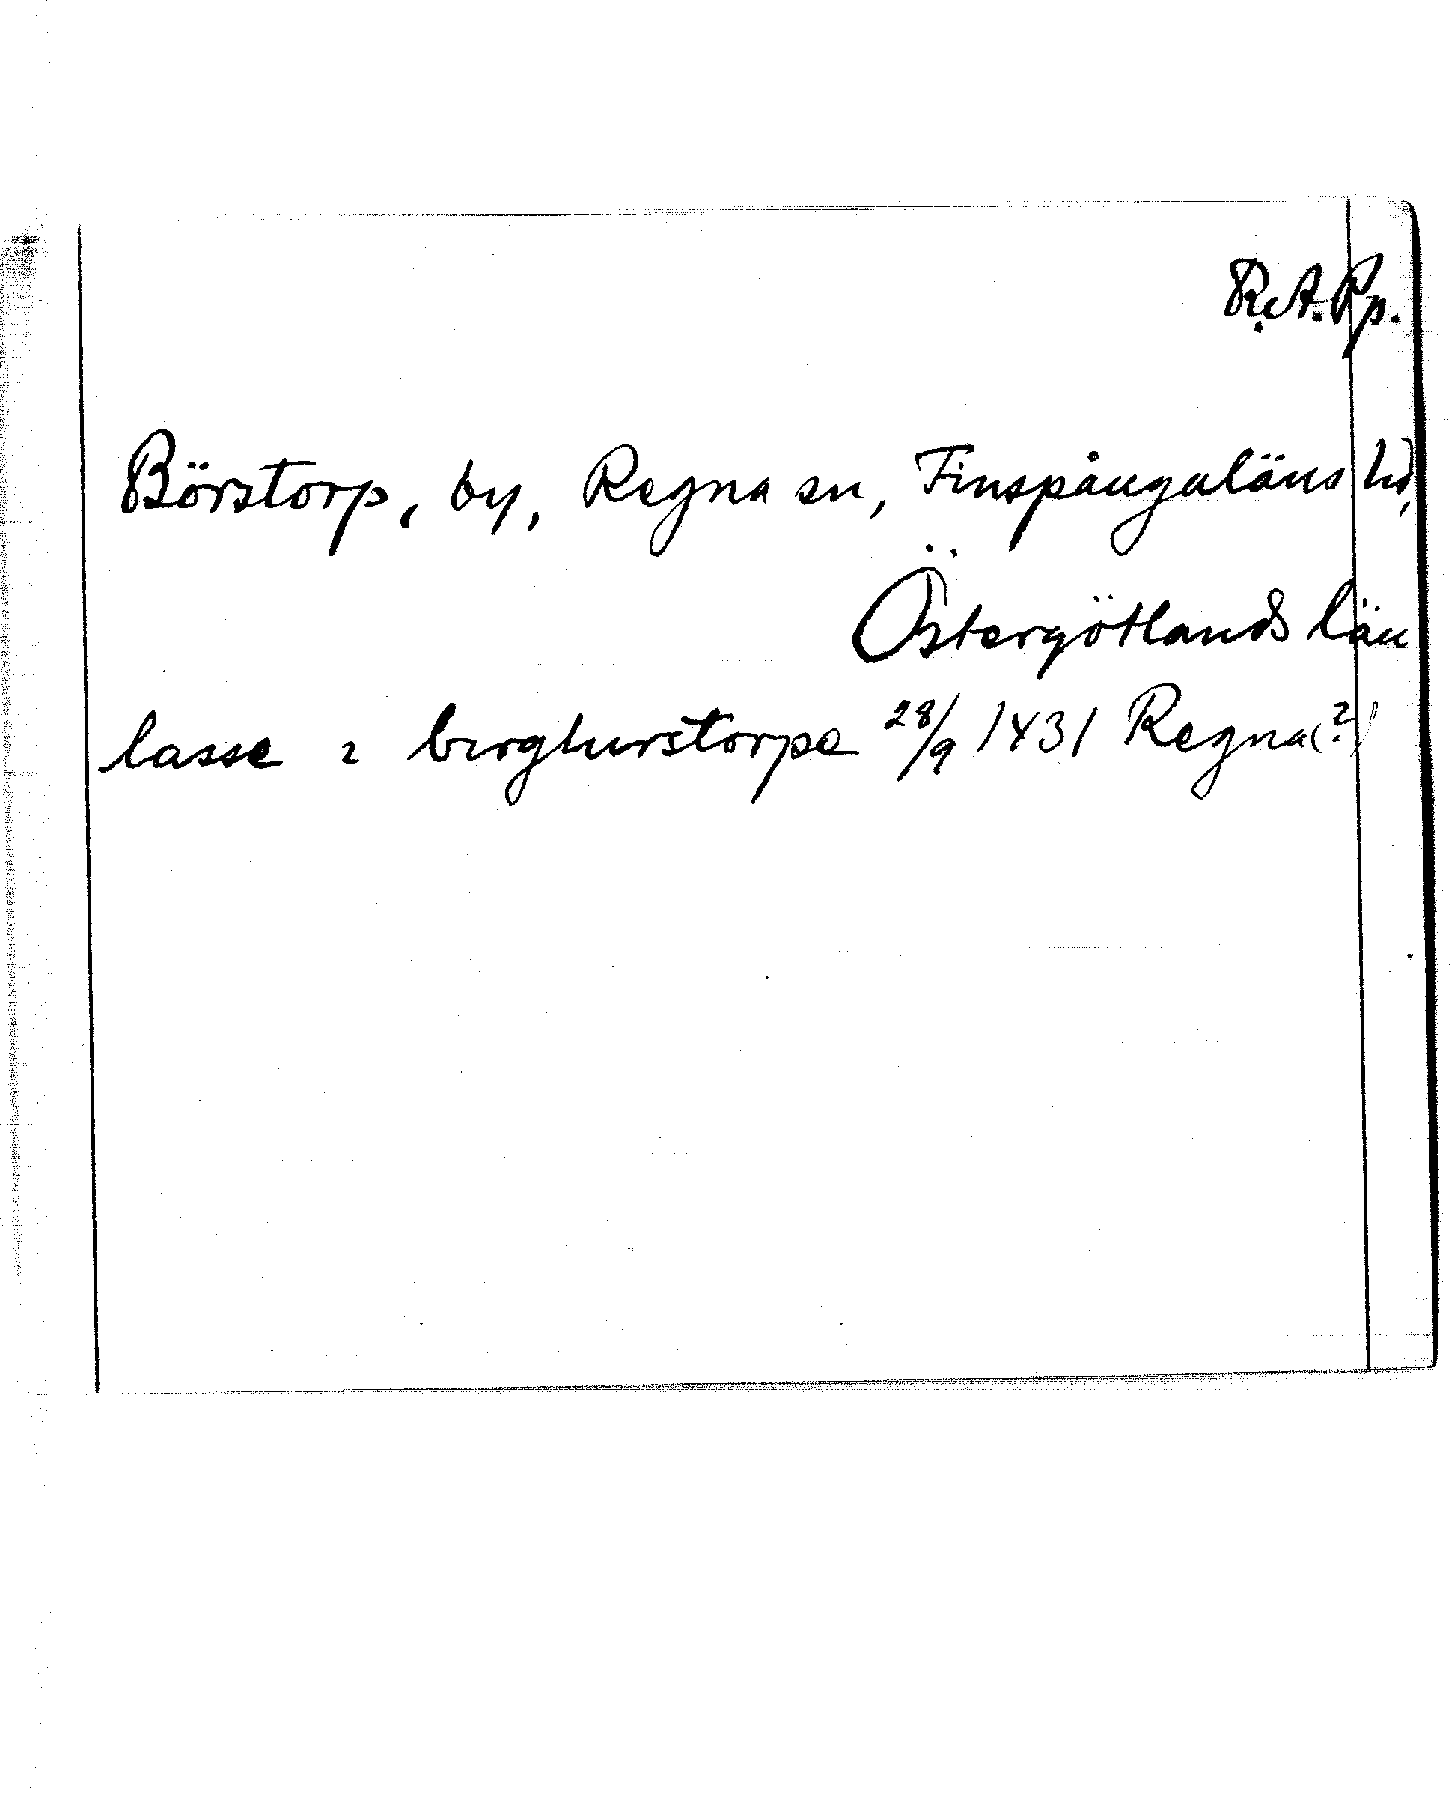 R.A. Pp.
Börstorp, by, Regna sn, Finspångaläns hd,
Östergötlands län
lasse i birghurstorpe 28/9 1431 Regna (?)